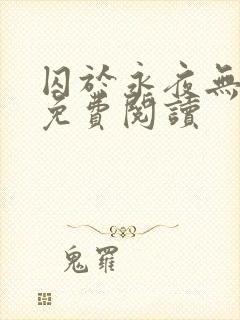 囚於永夜無
免費閱讀
鬼羅